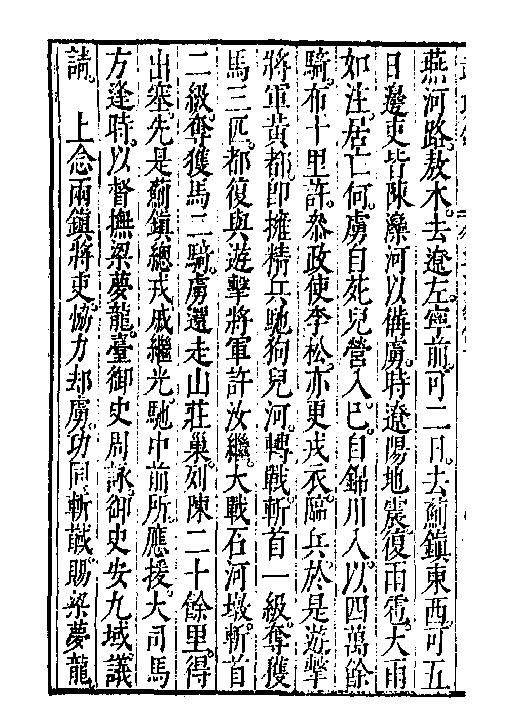 燕河路敖木。去遼左。寧前。可二日。去薊鎮東西。可五
日。邊吏皆陳濼河以備虜。時遼陽地震。復雨雹。大雨
如注。居亡何。虜自死兒營入已。自錦川入。以四萬餘
騎。布十里許。叅政使李松。亦更戎衣。臨兵。於是遊擊
將軍黃都。卽擁精兵馳狗兒河。轉戰。斬首一級。奪獲
馬三匹。都復與遊擊將軍許汝繼。大戰石河墩。斬首
二級。奪獲馬二騎。虜還走山莊巢。列陳二十餘里。得
出塞。先是薊鎮總戎戚繼光。馳中前所。應援。大司馬
方逢時。以督撫梁夢龍。臺御史周詠。御史安九域議
請。　上念兩鎮將吏。恊力却虜。功同斬馘。賜梁夢龍